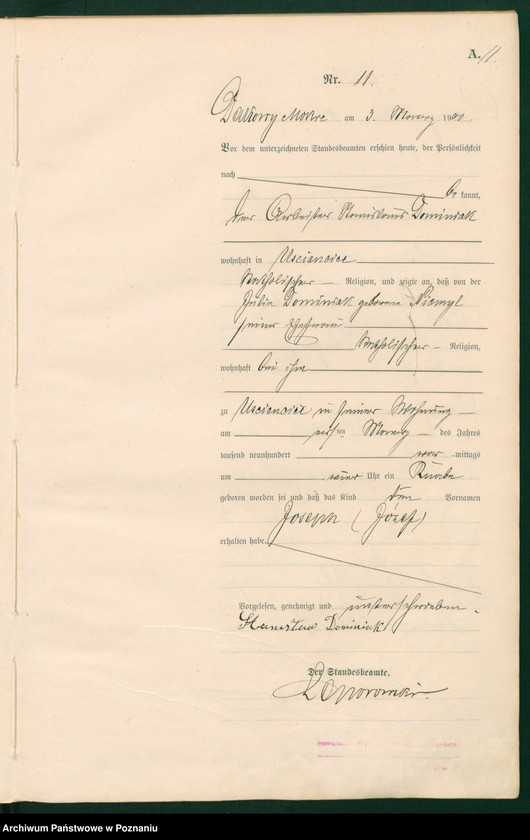 A. 11.
Nr. 11.
am 3. 1900.
Vor dem unterzeichneten Standesbeamten erschien heute, der Persönlichkeit
nach
be kannt,
der Arbeiter Stanislaus Dominiak
wohnhaft in Usciencice
katholischer Religion, und zeigte an, daß von der
Julia Dominiak geborene
seiner Ehefrau
katholischer Religion,
wohnhaft bei ihm
zu Usciencice in seiner Wohnung
am ersten des Jahres
tausend neunhundert vor mittags
um Uhr ein Knabe
geboren worden sei und daß das Kind den Vornamen
Joseph (Józef)
erhalten habe.
Vorgelesen, genehmigt und unterschrieben.
Stanisław Dominiak
Der Standesbeamte.
Archiwum Państwowe w Poznaniu